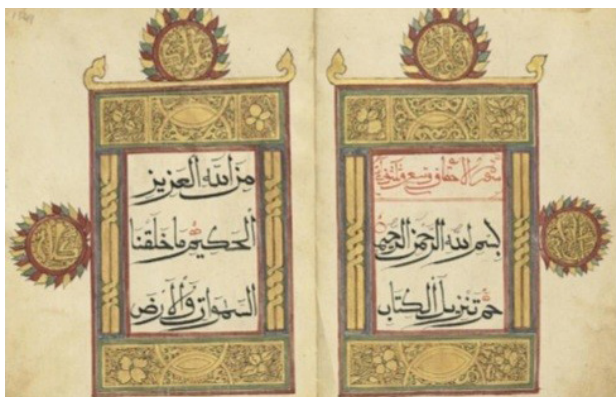 سورة الأحقاف
بسم الله الرحمن الرحيم
حم تنزيل الكتاب
من الله العزيز
الحكيم ما خلقنا
السموات والأرض